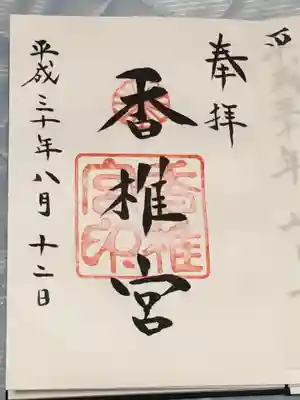 奉拝
香椎宮
香椎宮印
平成三十年八月十二日